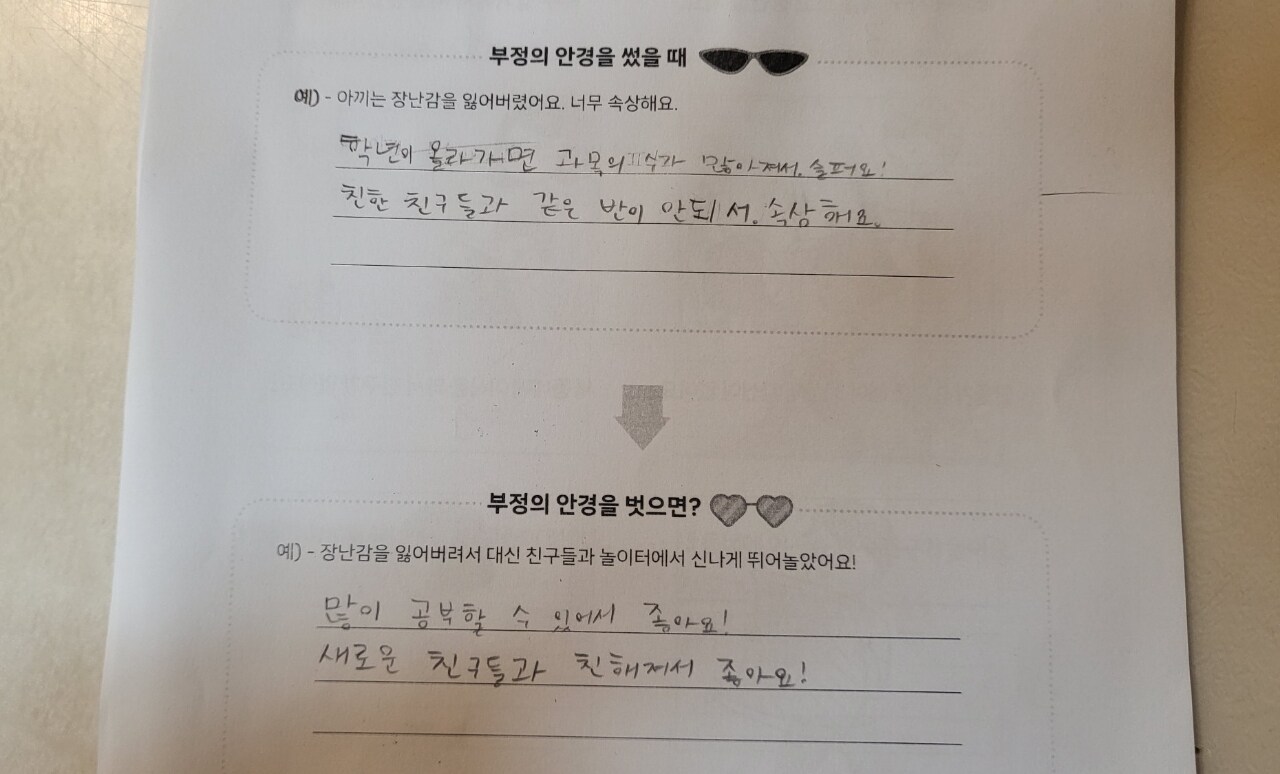 부정의 안경을 썼을 때
예) - 아끼는 장난감을 잃어버렸어요. 너무 속상해요.
학년이 올라가면 과목의 수가 많아져서. 슬퍼요!
친한 친구들과 같은 반이 안되서. 속상해요.
부정의 안경을 벗으면?
예) - 장난감을 잃어버려서 대신 친구들과 놀이터에서 신나게 뛰어놀았어요!
많이 공부할 수 있어서 좋아요!
새로운 친구들과 친해져서 좋아요!